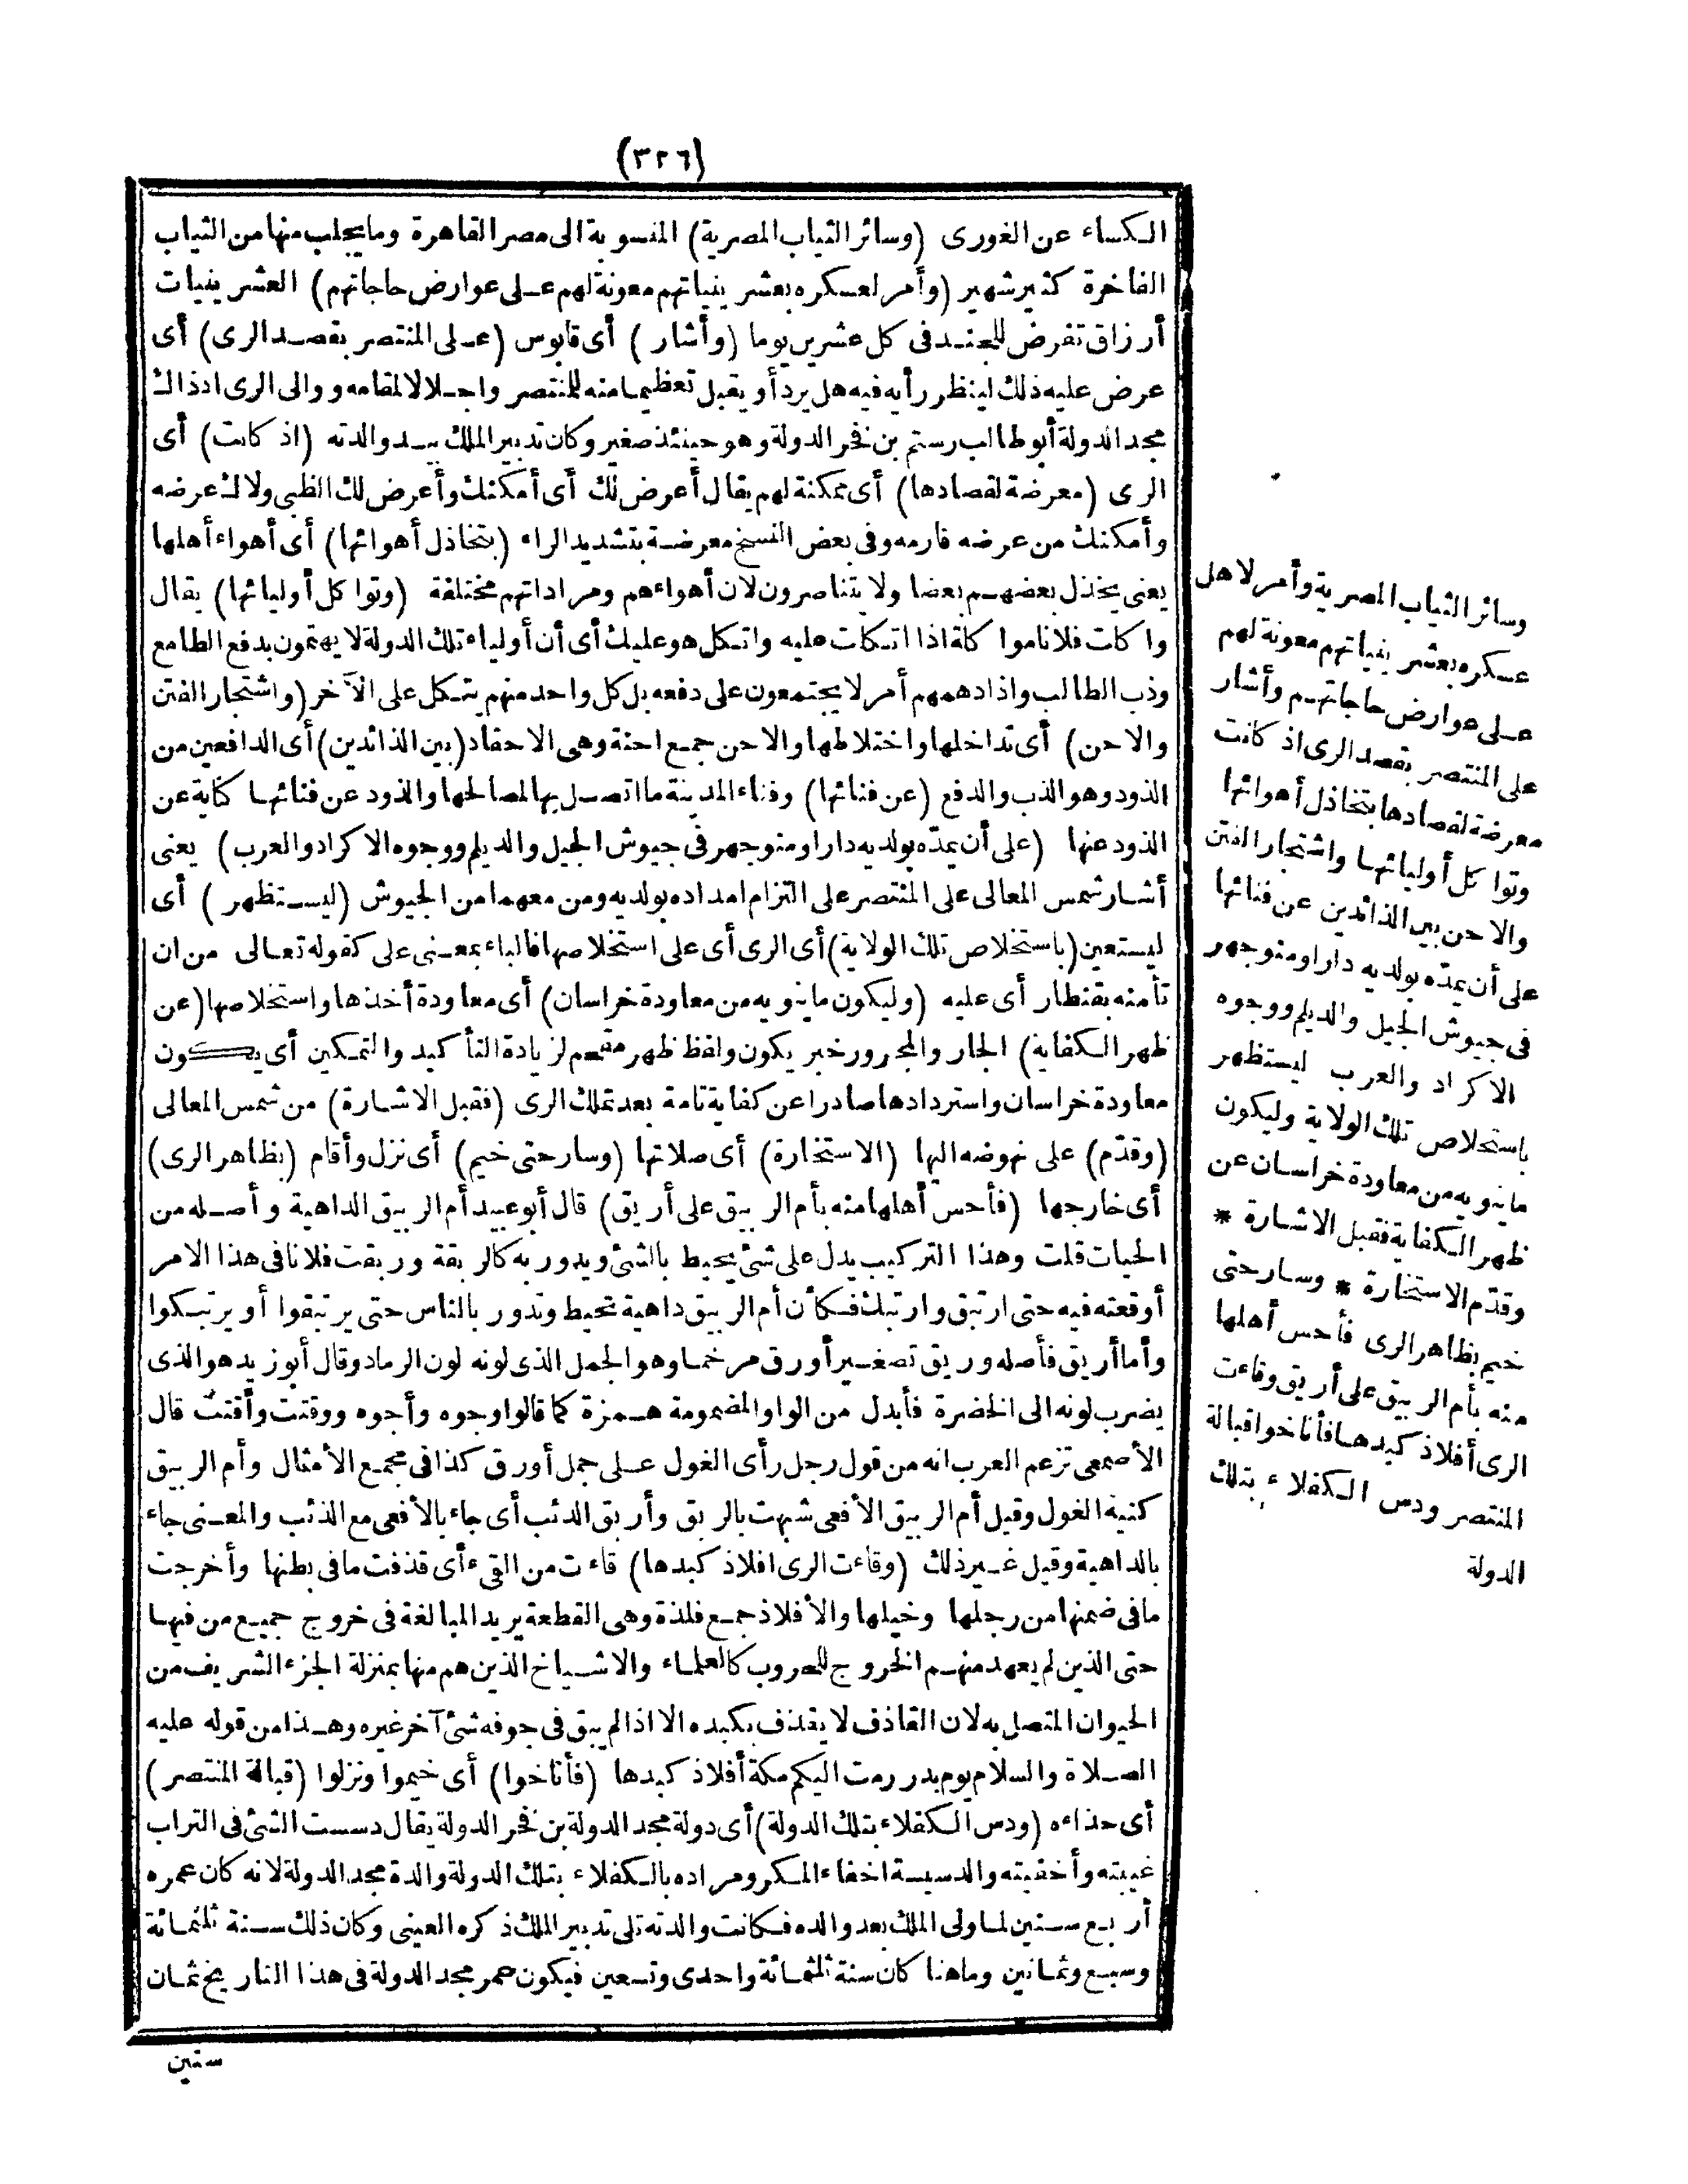 (٣٢٦)
الكساء عن الغورى (وسائر الثياب المصرية) المنسوبة الى مصر القاهرة وما يجلب منها من الثياب
الفاخرة كثير شهير (وأمر لعسكره بعشرينياتهم معونة لهم على عوارض حاجاتهم) العشرينيات
أرزاق تفرض للجند فى كل عشرين يوما (وأشار) أى قابوس (على المنتصر بقصد الرى) أى
عرض عليه ذلك لينظر رأيه فيه هل يرد أو يقبل تعظيما منه للمنتصر واجلالا لمقامه ووالى الرى اذذاك
مجد الدولة أبو طالب رستم بن فخر الدولة وهو حينئذ صغير وكان تدبير الملك بيد والدته (اذ كانت) أى
الرى (معرضة لقصادها) أى ممكنة لهم يقال أعرض لك أى أمكنك وأعرض لك الظبى ولاك عرضه
وأمكنك من عرضه فارمه وفى بعض النسخ معرضة بتشديد الراء (بتخاذل أهوائها) أى أهواء أهلها
يعنى يخذل بعضهم بعضا ولا يتناصرون لان أهواءهم ومراداتهم مختلفة (وتواكل أوليائها) يقال
واكات فلانا مواكلة اذا اتكات عليه واتكل هو عليك أى أن أولياء تلك الدولة لا يهتمون بدفع الطامع
وذب الطالب واذا دهمهم أمر لا يجتمعون على دفعه بل كل واحد منهم يتكل على الآخر (واشتجار الفتن
والاحن) أى تداخلها واختلاطها والاحن جمع احنة وهى الاحقاد (بين الذائدين) أى الدافعين من
الذود وهو الذب والدفع (عن فنائها) وفناء المدينة ما اتصل بها لمصالحها والذود عن فنائها كناية عن
الذود عنها (على أن يمدّه بولديه دارا ومنوجهر فى جيوش الجيل والديلم ووجوه الاكراد والعرب) يعنى
أشار شمس المعالى على المنتصر على التزام امداده بولديه ومن معهما من الجيوش (ليستظهر) أى
ليستعين (باستخلاص تلك الولاية) أى الرى أى على استخلاصها فالباء بمعنى على كقوله تعالى من ان
تأمنه بقنطار أى عليه (وليكون ما ينويه من معاودة خراسان) أى معاودة أخذها واستخلاصها (عن
ظهر الكفاية) الجار والمجرور خبر يكون ولفظ ظهر مقحم لزيادة التأكيد والتمكين أى يكون
معاودة خراسان واستردادها صادرا عن كفاية تامة بعد تملك الرى (فقبل الاشارة) من شمس المعالى
(وقدّم) على نهوضه اليها (الاستخارة) أى صلاتها (وسار حتى خيم) أى نزل وأقام (بظاهر الرى)
أى خارجها (فأحس أهلها منه بأم الربيق على أريق) قال أبو عبيد أم الربيق الداهية وأصله من
الحيات قلت وهذا التركيب يدل على شئ يحيط بالشئ ويدور به كالربقة وربقت فلانا فى هذا الامر
أوقعته فيه حتى ارتبق وارتبك فكأن أم الربيق داهية تحيط وتدور بالناس حتى يرتبقوا أو يرتبكوا
وأما أريق فأصله وريق تصغير أورق مرخما وهو الجمل الذى لونه لون الرماد وقال أبو زيد هو الذى
يضرب لونه الى الخضرة فأبدل من الواو المضمومة همزة كما قالوا وجوه وأجوه ووقتت وأقتت قال
الأصمعى تزعم العرب انه من قول رجل رأى الغول على جمل أورق كذا فى مجمع الأمثال وأم الربيق
كنية الغول وقيل أم الربيق الأفعى شبهت بالربق وأريق الذئب أى جاء بالأفعى مع الذئب والمعنى جاء
بالداهية وقيل غير ذلك (وقاءت الرى افلاذ كبدها) قاءت من القىء أى قذفت ما فى بطنها وأخرجت
ما فى ضمنها من رجلها وخيلها والأفلاذ جمع فلذة وهى القطعة يريد المبالغة فى خروج جميع من فيها
حتى الذين لم يعهد منهم الخروج للحروب كالعلماء والاشياخ الذين هم منها بمنزلة الجزء الشريف من
الحيوان المتصل به لان القاذف لا يقذف بكبده الا اذا لم يبق فى جوفه شئ آخر غيره وهذا من قوله عليه
الصلاة والسلام يوم بدر رمت اليكم مكة أفلاذ كبدها (فأناخوا) أى خيموا ونزلوا (قبالة المنتصر)
أى حذاءه (ودس الكفلاء بتلك الدولة) أى دولة مجد الدولة بن فخر الدولة يقال دسست الشئ فى التراب
غيبته وأخفيته والدسيسة اخفاء المكر ومراده بالكفلاء بتلك الدولة والدة مجد الدولة لانه كان عمره
أربع سنين لما ولى الملك بعد والده فكانت والدته تلى تدبير الملك ذكره العينى وكان ذلك سنة ثلثمائة
وسبع وثمانين وماهنا كان سنة ثلثمائة واحدى وتسعين فيكون عمر مجد الدولة فى هذا التاريخ ثمان
سنين
وسائر الثياب المصرية وأمر لاهل
عسكره بعشرينياتهم معونة لهم
على عوارض حاجاتهم وأشار
على المنتصر بقصد الرى اذ كانت
معرضة لقصادها بتخاذل أهوائها
وتواكل أوليائها واشتجار الفتن
والاحن بين الذائدين عن فنائها
على أن يمدّه بولديه دارا ومنوجهر
فى جيوش الجيل والديلم ووجوه
الاكراد والعرب ليستظهر
باستخلاص تلك الولاية وليكون
ما ينويه من معاودة خراسان عن
ظهر الكفاية فقبل الاشارة *
وقدّم الاستخارة * وسار حتى
خيم بظاهر الرى فأحس أهلها
منه بأم الربيق على أريق وقاءت
الرى أفلاذ كبدها فأناخوا قبالة
المنتصر ودس الكفلاء بتلك
الدولة